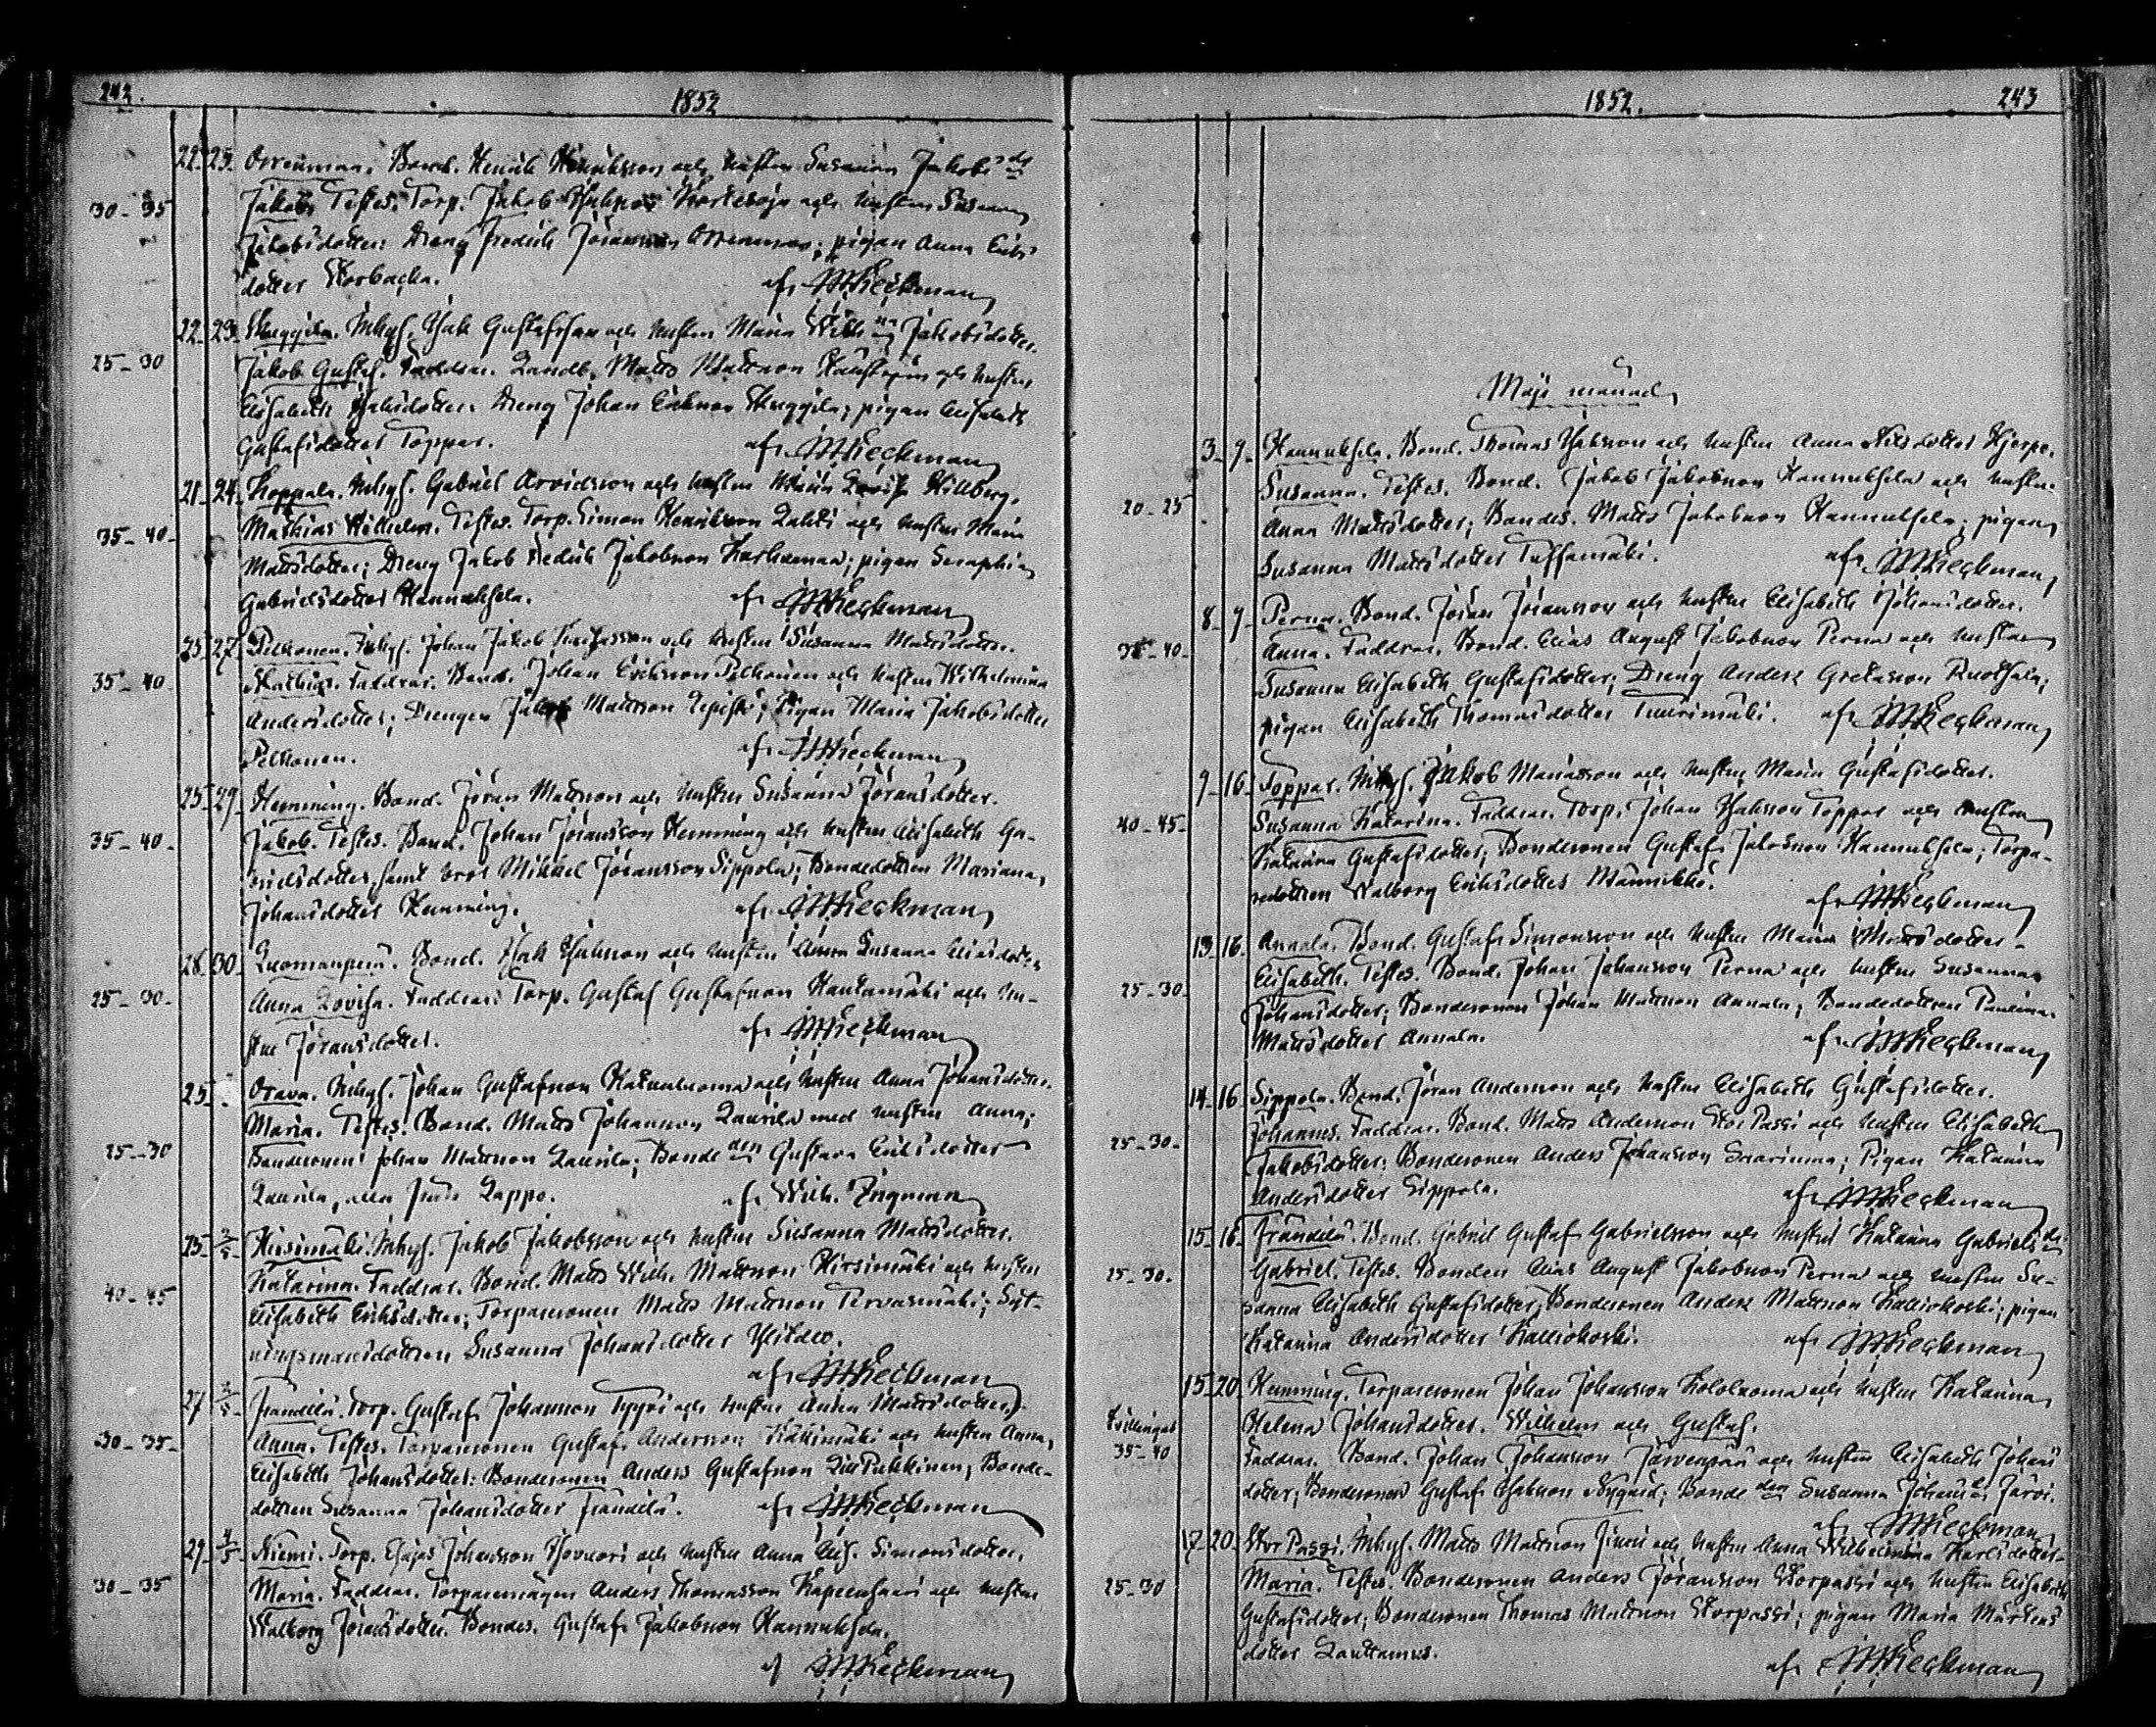 242.
1852
22. 23. Orrenmaa. Bond. Henrik Henriksson och hustru Susanna Jakobs ds
30-35 Jakob. Testes. Torp. Jakob och hustru Susanna
Jakobsdotter: Dreng Fredrik Jöransson Orrenmaa; pigan Anna Eriks
dotter Storbacka. af JMKeckman
22. 23. Skuggila. Inhys. Isak Gustafsson och hustru Maria Wilh na Jakobsdotter.
25-30 Jakob Gustaf. Faddrar. Landb. Matts Mattsson och hustru
Elisabeth Isaksdotter: Dreng Johan Eriksson Skuggila; pigan Elisabeth
Gustafsdotter Toppar. af JMKeckman
21. 24. Koppala. Inhys. Gabriel Arvidsson och hustru Maria Lovisa Hillberg.
35-40- Mathias Wilhelm. Testes. Torp. Simon Henriksson Lahti och hustru Maria
Mattsdotter; Dreng Jakob Fredrik Jakobsson Karhunmaa; pigan Seraphia
Gabrielsdotter Hannuksela. af JMKeckman
25. 27. Pelkonen. Inhys. Johan Jakob och hustru Susanna Mattsdotter.
35-40- Mathias. Faddrar. Bond. Johan Eriksson Pelkonen och hustru Wilhelmina
Andersdotter; Drengen Jakob Mattsson Lepistö; Pigan Maria Jakobsdotter
Pelkonen. af JMKeckman
25. 29. Hemming. Bond. Jöran Mattsson och hustru Susanna Jöransdotter.
35-40- Jakob. Testes. Bond. Johan Jöransson Hemming och hustru Elisabeth Ga-
brielsdotter, samt bror Mikkel Jöransson Sippola; Bondedottren Mariana
Johansdotter Hemming. af JMKeckman
28. 30. Luomanperä. Bond. Isak Isaksson och hustru Anna Susanna Eliasdotter
25-30- Anna Lovisa. Faddrar: Torp. Gustaf Gustafsson Hautamäki och hu-
stru Jöransdotter. af JMKeckman
25. - Orava. Inhys. Johan Gustafsson Hakuoluoma och hustru Anna Johansdotter.
Maria. Testes. Bond. Matts Johansson Laurila med hustru Anna;
25-30 Bondesonen Johan Mattsson Laurila; Bonde den Gustava Eriksdotter
Laurila, alla från Lappo. af Wilh. Ingman
25. 2/5 Hirsimäki. Inhys. Jakob Jakobsson och hustru Susanna Mattsdotter.
40-45 Katarina. Faddrar. Bond. Matts Wilh. Mattsson Hirsimäki och hustru
Elisabeth Eriksdotter; Torparesonen Matts Mattsson Tervasmäki; Syt-
ningsmansdottren Susanna Johansdotter
af JMKeckman
27 2/5 Frändilä. Torp. Gustaf Johansson Tyyri och hustru Anna Mattsdotter.
30-35- Anna. Testes. Torparesonen Gustaf Andersson och hustru Anna
Elisabeth Johansdotter: Bondesonen Anders Gustafsson Lill Puhkinen, Bonde-
dottren Susanna Johansdotter Frändilä. af JMKeckman
29 4/5 Niemi. Torp. Esajas Johansson Isovuori och hustru Anna Elis. Simonsdotter.
30-35 Maria. Faddrar. Torparemågen Anders Thomasson och hustru
Walborg Jöransdotter. Bondes. Gustaf Jakobsson Hannuksela.
af JMKeckman
1852.
243
Maji månad
3. 9. Hannuksela. Bond. Thomas Isaksson och hustru Anna Nilsdotter Hjerpe.
20-25 Susanna. Testes. Bond. Jakob Jakobsson Hannuksela och hustru
Anna Mattsdotter; Bondes. Matts Jakobsson Hannuksela; pigan
Susanna Mattsdotter Tuffamäki. af JMKeckman
8. 9. Perna. Bond. Jöran Jöransson och hustru Elisabeth Johansdotter.
35-40- Anna. Faddrar. Bond. Elias August Jakobsson Perna och hustru
Susanna Elisabeth Gustafsdotter; Dreng Anders Gretasson Ruotsala;
pigan Elisabeth Thomasdotter Tuurimäki. af JMKeckman
9. 16. Toppar. Inhys. Jakob Mariasson och hustru Maria Gustafsdotter.
40-45- Susanna Katarina. Faddrar. Torp. Johan Isaksson Toppar och hustru
Katarina Gustafsdotter; Bondesonen Gustaf Jakobsson Hannuksela; Torpa-
redottren Walborg Eriksdotter Männikkö. af JMKeckman
13. 16. Annala. Bond. Gustaf Simonsson och hustru Maria Mattsdotter-
25-30- Elisabeth. Testes. Bond. Johan Johansson Perna och hustru Susanna
Johansdotter; Bondesonen Johan Mattsson Annala; Bondedottren Paulina
Mattsdotter Annala. af JMKeckman
14. 16 Sippola. Bond. Jöran Andersson och hustru Elisabeth Gustafsdotter.
25-30- Johannes. Faddrar. Bond. Matts Andersson Stor Passi och hustru Elisabeth
Jakobsdotter: Bondesonen Anders Johansson; Pigan Katarina
Andersdotter Sippola. af JMKeckman
15. 16. Frändilä. Bond. Gabriel Gustaf Gabrielsson och hustru Katarina Gabriels ds
25-30. Gabriel. Testes. Bonden Elias August Jakobsson Perna och hustru Su-
sanna Elisabeth Gustafsdotter; Bondesonen Anders Mattsson Kalliokoski; pigan
Katarina Andersdotter Kalliokoski. af JMKeckman
15. 20. Hemming. Torparesonen Johan Johansson Kololuoma och hustru Katarina
Tvillingar Helena Johansdotter. Wilhelm och Gustaf.
35-40 Faddrar. Bond. Johan Johansson Järvenpää och hustru Elisabeth Johans
dotter; Bondesonen Gustaf Isaksson Nygård; Bonde den Susanna Johansds Järvi.
af JMKeckman
17. 20. Stor Passi. Inhys. Matts Mattsson och hustru Anna Wilhelmina Karlsdotter-
25-30 Maria. Testes. Bondesonen Anders Jöransson Storpassi och hustru Elisabeth
Gustafsdotter; Bondesonen Thomas Mattsson Storpassi; pigan Maria Mårtens
dotter Lauttamus. af JMKeckman